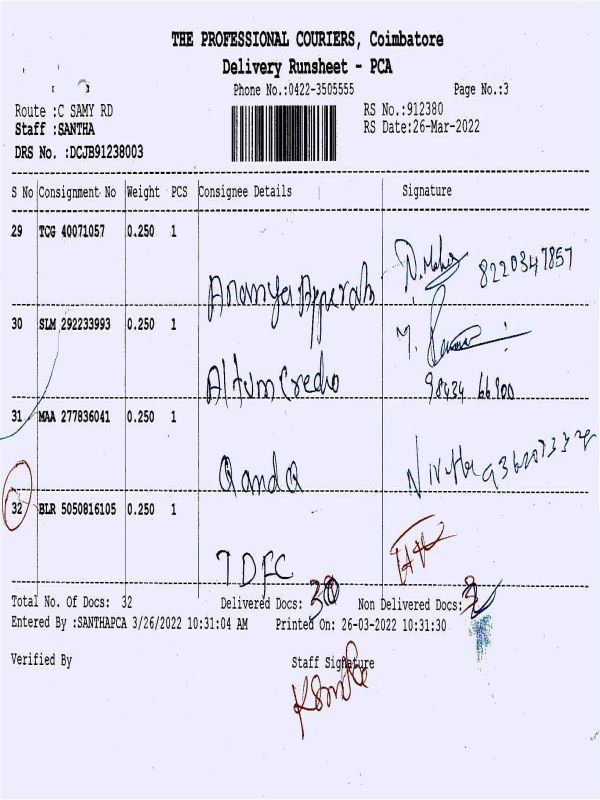 THE PROFESSIONAL COURIERS, Coimbatore
Delivery Runsheet - PCA
Phone No.:0422-3505555 Page No.:3
Route :C SAMY RD RS No.:912380
Staff :SANTHA RS Date:26-Mar-2022
DRS No. :DCJB91238003
S No Consignment No Weight PCS Consignee Details Signature
29 TCG 40071057 0.250 1
8220347857
30 SLM 292233993 0.250 1
Altum Credo
98434 66900
31 MAA 277836041 0.250 1
32 BLR 5050816105 0.250 1
Total No. Of Docs: 32 Delivered Docs: 30 Non Delivered Docs: 2
Entered By :SANTHAPCA 3/26/2022 10:31:04 AM Printed On: 26-03-2022 10:31:30
Verified By Staff Signature